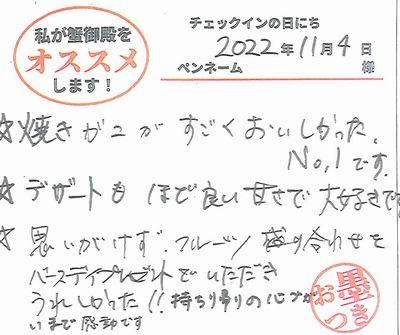 私が蟹御殿を
オススメ
します！
チェックインの日にち
2022年11月4日
ペンネーム 様
☆焼きガニがすごくおいしかった。
No,1です。
☆デザートもほど良い甘さで大好きです
☆思いがけず、フルーツ盛り合わせを
バースデイプレゼントでいただき
うれしかった!! 持ち帰りの
いまで感動です
墨
おつき